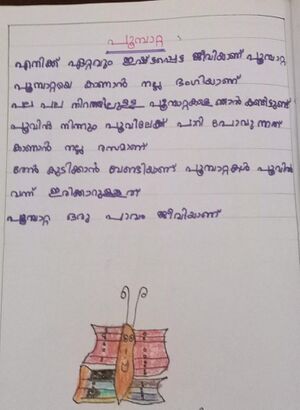 പൂമ്പാറ്റ
എനിക്ക് ഏറ്റവും ഇഷ്ടപ്പെട്ട ജീവിയാണ് പൂമ്പാറ്റ
പൂമ്പാറ്റയെ കാണാൻ നല്ല ഭംഗിയാണ്
പല പല നിറത്തിലുള്ള പൂമ്പാറ്റകളെ ഞാൻ കണ്ടിട്ടുണ്ട്
പൂവിൽ നിന്നും പൂവിലേക്ക് പാറി പോവുന്നത്
കാണാൻ നല്ല രസമാണ്
തേൻ കുടിക്കാൻ വേണ്ടിയാണ് പൂമ്പാറ്റകൾ പൂവിൽ
വന്ന് ഇരിക്കാറുള്ളത്
പൂമ്പാറ്റ ഒരു പാവം ജീവിയാണ്